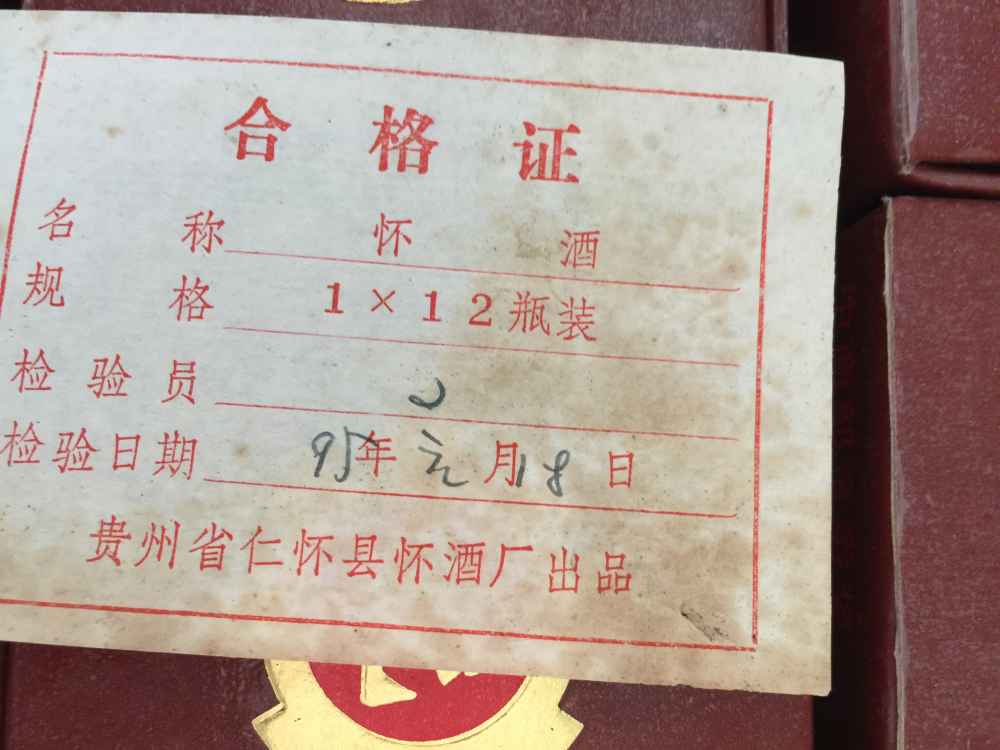 合格证
名称 怀酒
规格 1×12瓶装
检验员 2
检验日期 95年元月18日
贵州省仁怀县怀酒厂出品